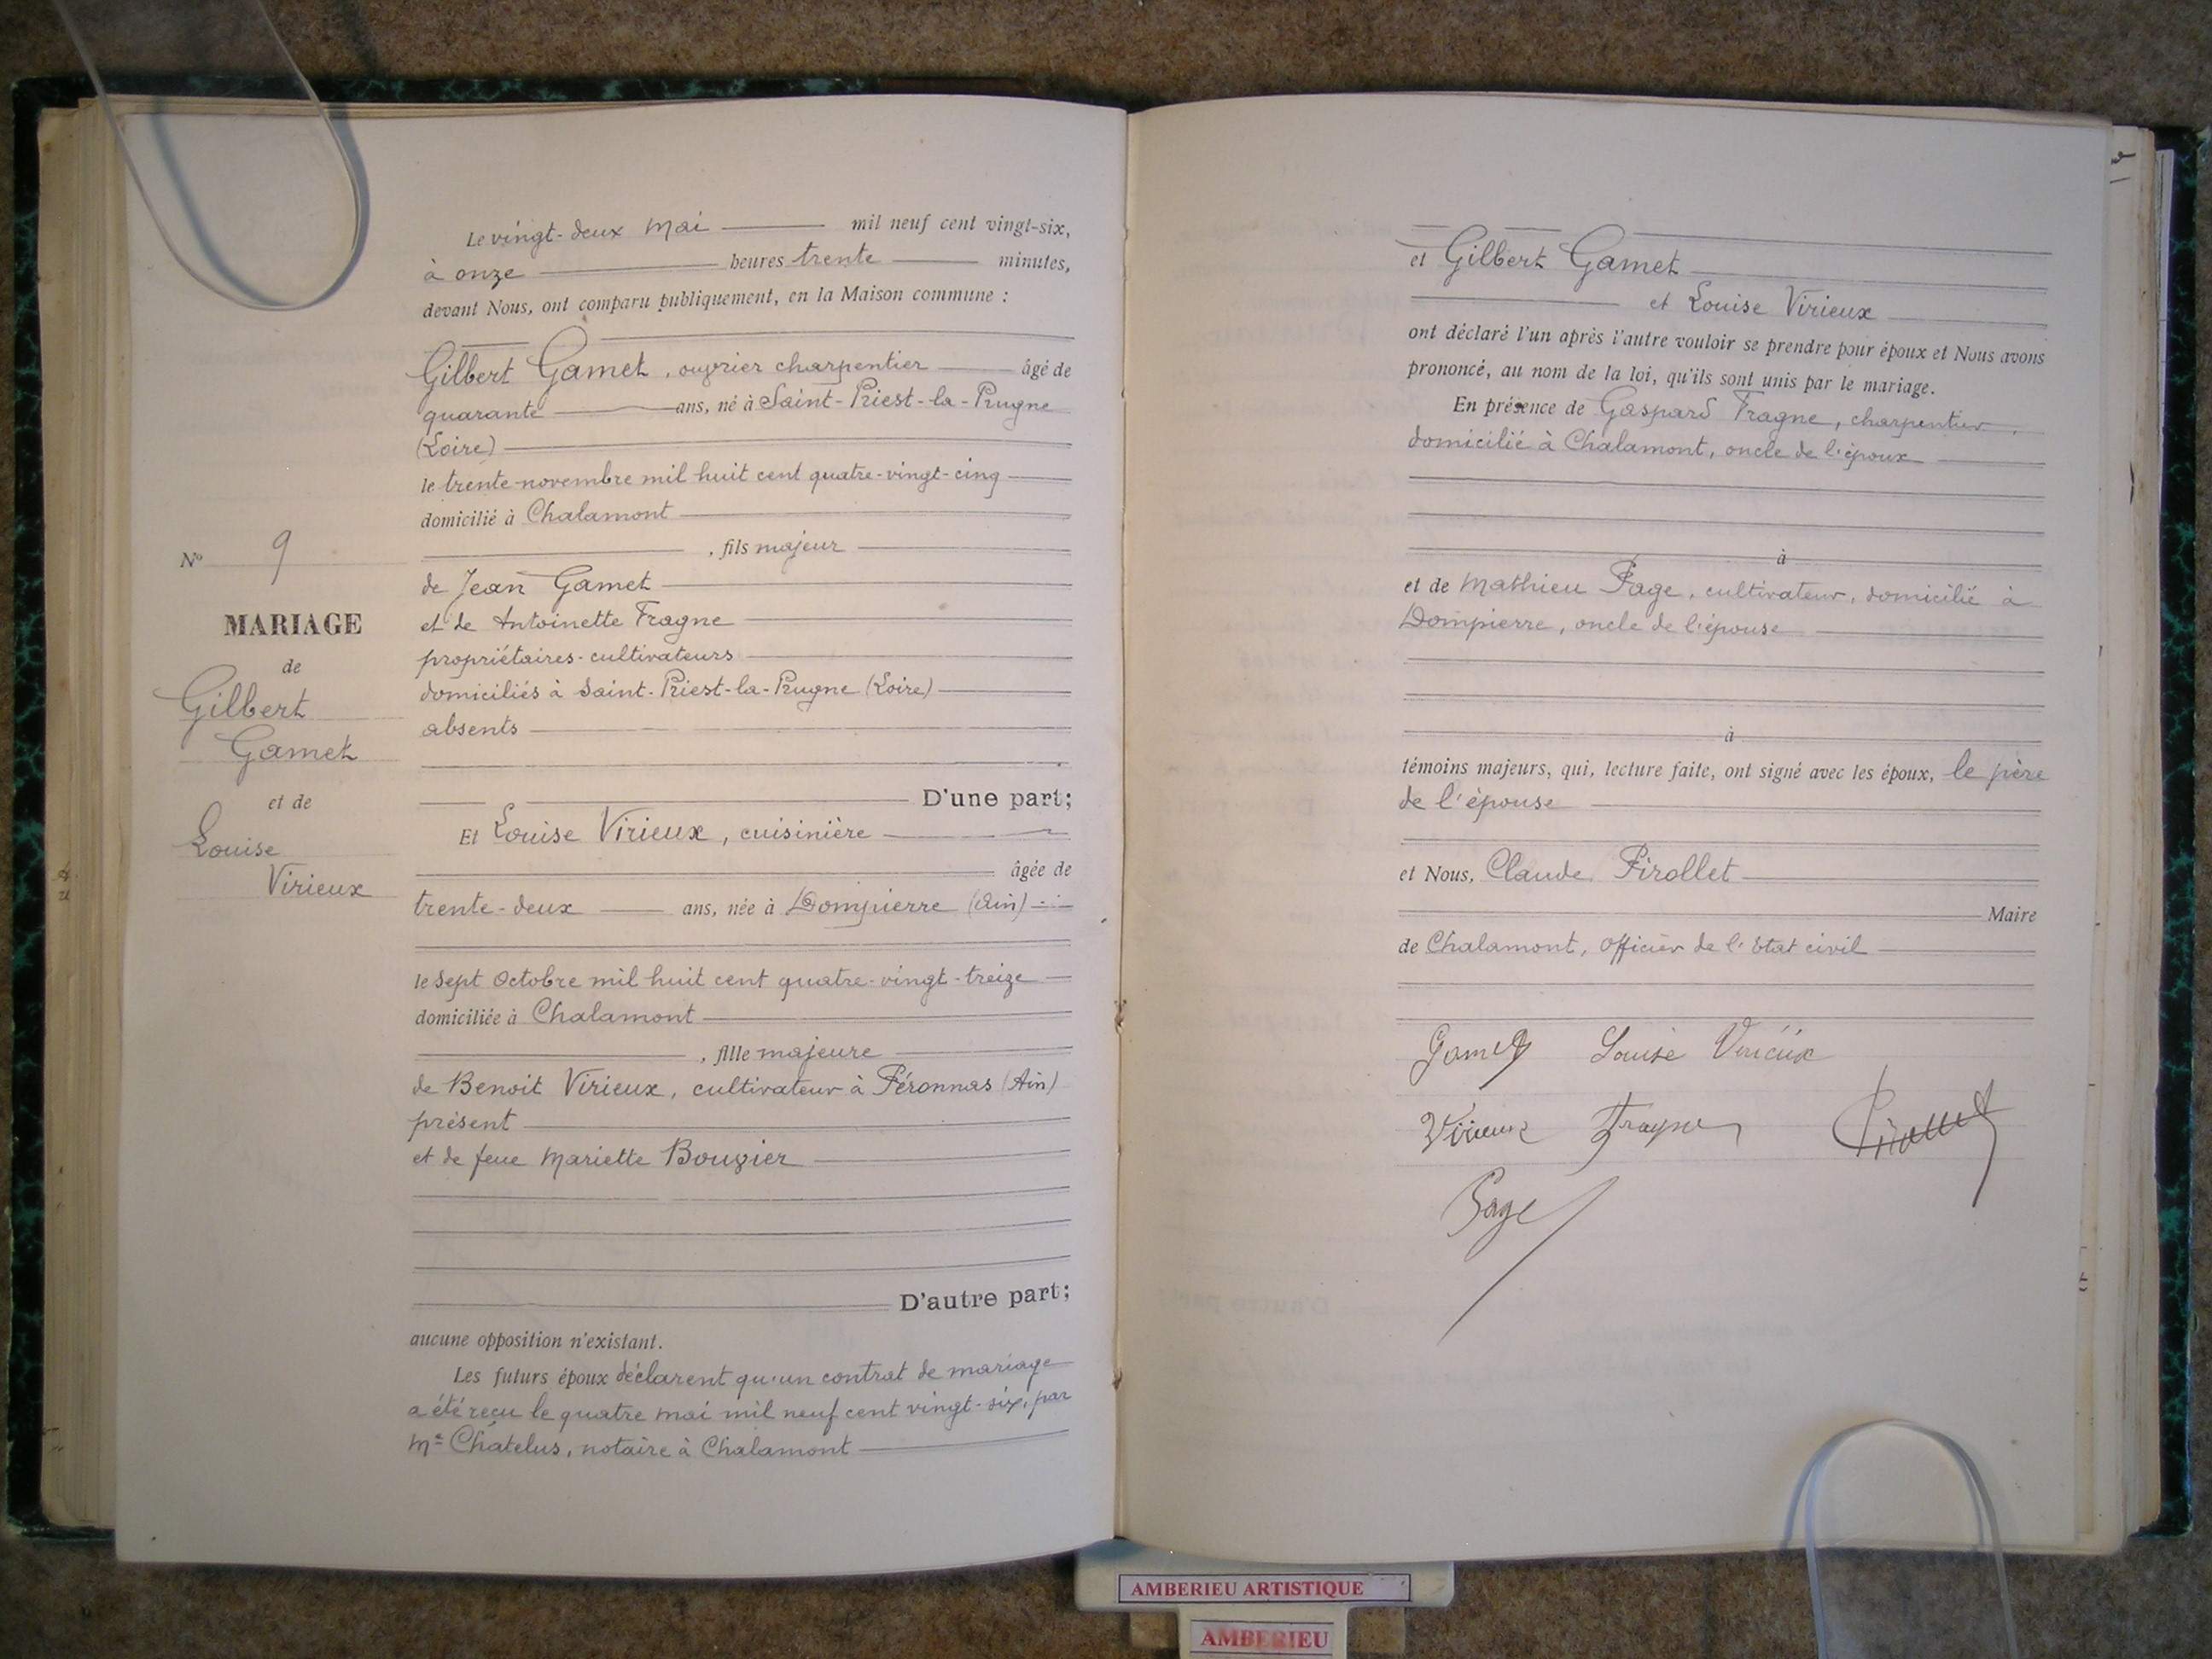 Le vingt-deux Mai mil neuf cent vingt-six,
à onze heures trente minutes,
devant Nous, ont comparu publiquement, en la Maison commune :
Gilbert Gamet, ouvrier charpentier âgé de
quarante ans, né à Saint-Priest-la-Prugne
(Loire)
le trente novembre mil huit cent quatre-vingt-cinq
domicilié à Chalamont
, fils majeur
de Jean Gamet
et de Antoinette Fragne
propriétaires-cultivateurs
domiciliés à Saint-Priest-la-Prugne (Loire)
absents
D'une part;
Et Louise Virieux, cuisinière
âgée de
trente-deux ans, née à Dompierre (Ain)
le sept Octobre mil huit cent quatre-vingt-treize
domiciliée à Chalamont
, fille majeure
de Benoit Virieux, cultivateur à Péronnas (Ain)
présent
et de feue Mariette Bouvier
D'autre part;
aucune opposition n'existant.
Les futurs époux déclarent qu'un contrat de mariage
a été reçu le quatre mai mil neuf cent vingt-six, par
Me Chatelus, notaire à Chalamont
No 9
MARIAGE
de
Gilbert
Gamet
et de
Louise
Virieux
et Gilbert Gamet
et Louise Virieux
ont déclaré l'un après l'autre vouloir se prendre pour époux et Nous avons
prononcé, au nom de la loi, qu'ils sont unis par le mariage.
En présence de Gaspard Fragne, charpentier,
domicilié à Chalamont, oncle de l'époux
à
et de Mathieu Page, cultivateur, domicilié à
Dompierre, oncle de l'épouse
à
témoins majeurs, qui, lecture faite, ont signé avec les époux, le père
de l'épouse
et Nous, Claude Pirollet
Maire
de Chalamont, Officier de l'Etat civil
Gamet Louise Virieux
Virieux Fragne Pirollet
Page
AMBERIEU ARTISTIQUE
AMBERIEU